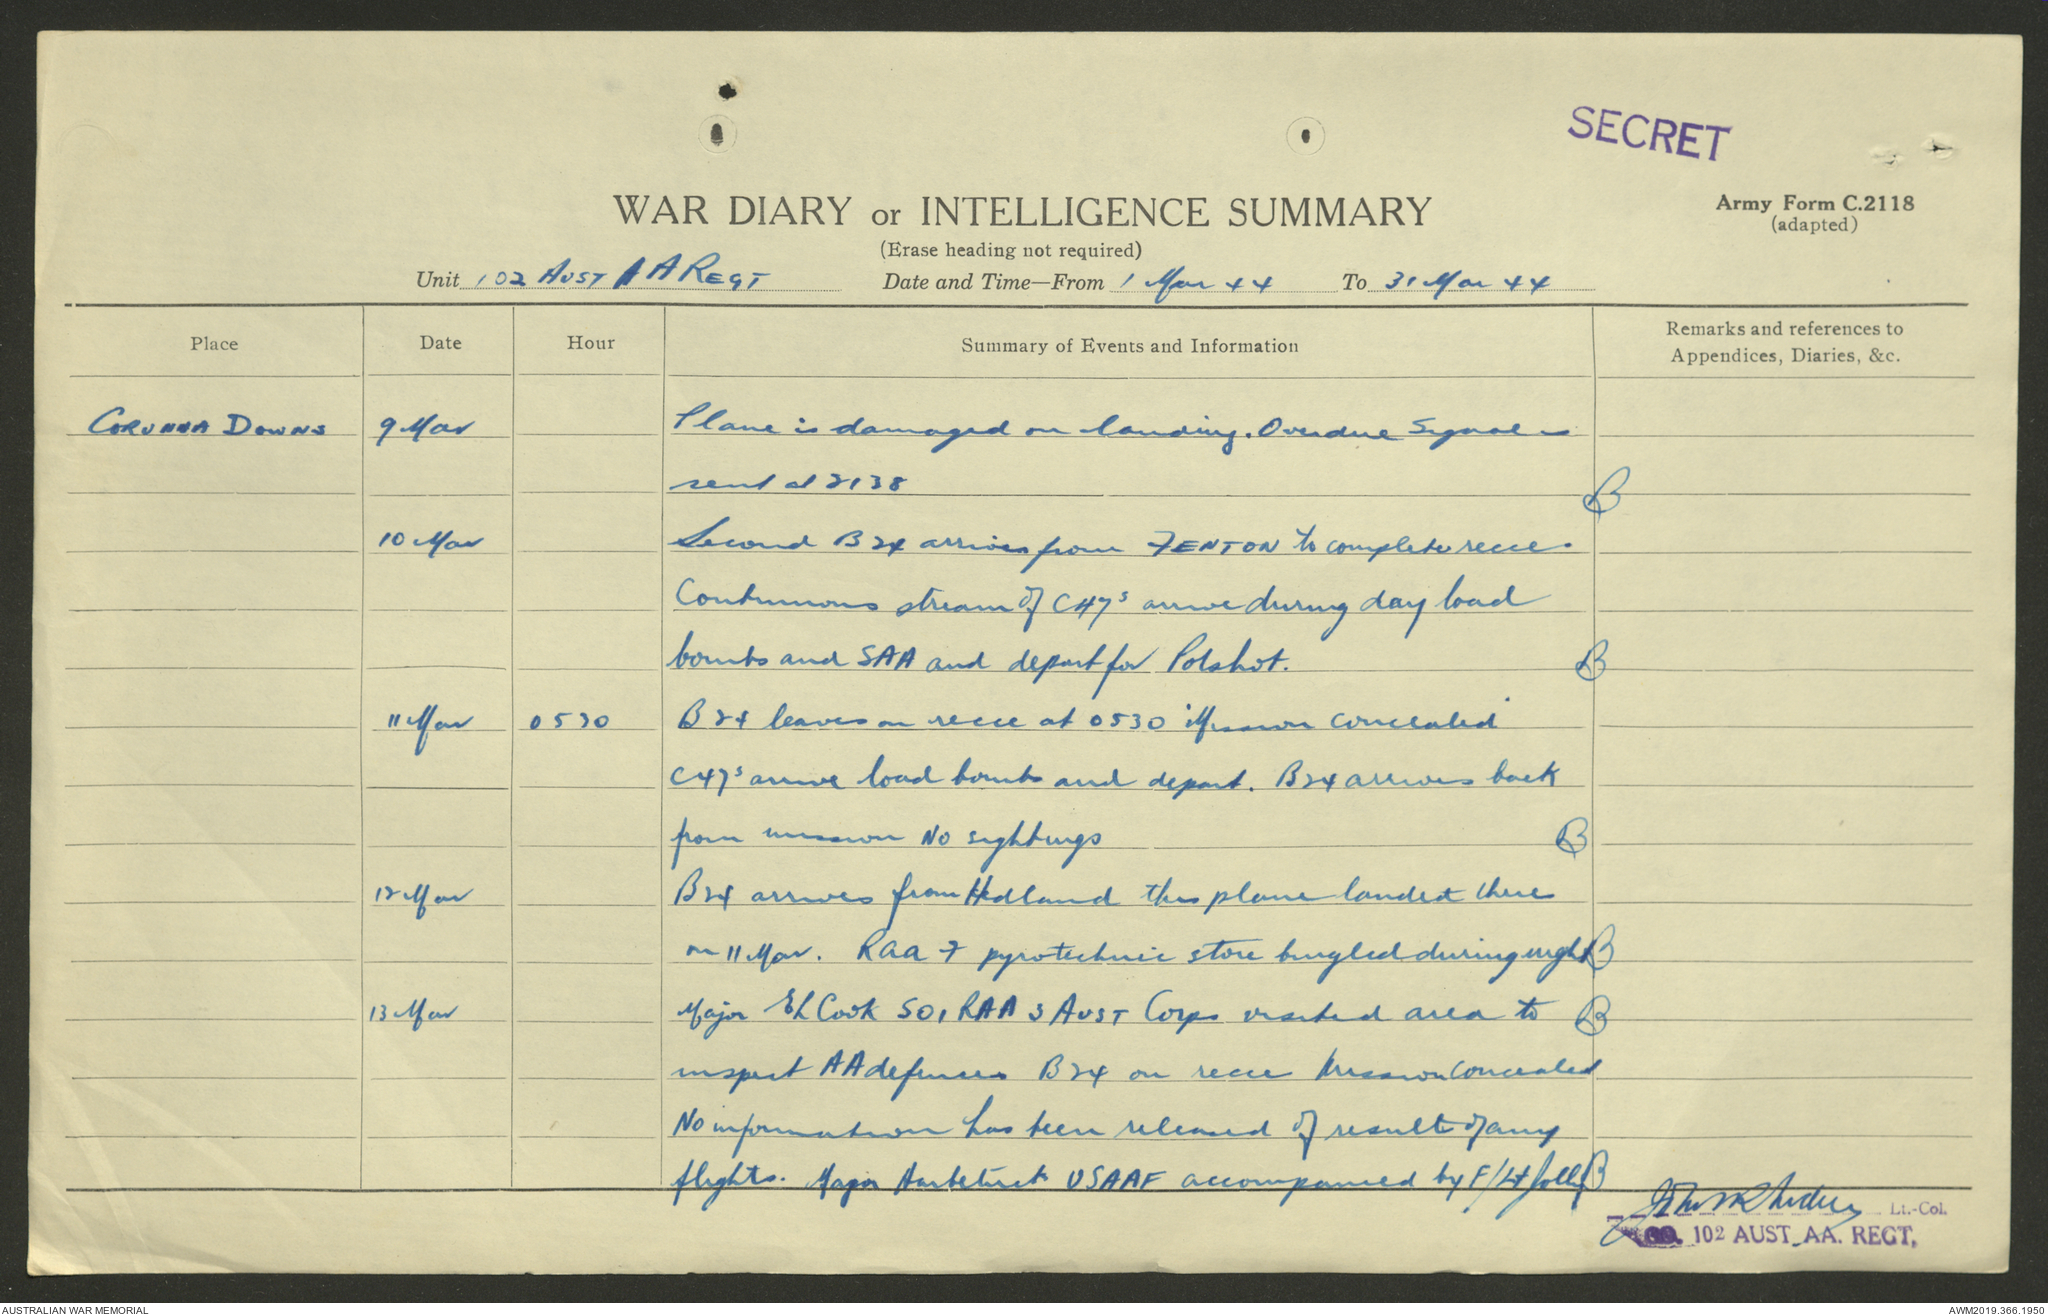 SECRET
WAR DIARY or INTELLIGENCE SUMMARY
Army Form C.2118
(adapted)
(Erase heading not required)
Unit 102 AUST AA REGT Date and Time—From 1 Mar 44 To 31 Mar 44
Place Date Hour Summary of Events and Information Remarks and references to
Appendices, Diaries, &c.
CORUNNA DOWNS 9 Mar Plane is damaged on landing. Overdue Signal is
sent at 2138
10 Mar Second B24 arrives from FENTON to complete recce.
Continuous stream of C47s arrive during day load
bombs and SAA and depart for Potshot.
11 Mar 0530 B24 leaves on recce at 0530 'Mission concealed'
C47s arrive load bombs and depart. B24 arrives back
from mission No sightings
12 Mar B24 arrives from Hedland this plane landed there
on 11 Mar. RAAF pyrotechnic store burgled during night
13 Mar Major Cook SO1 RAA 3 AUST Corps visited area to
inspect AA defences B24 on recce Mission concealed
No information has been released of result of any
flights. Major USAAF accompanied by F/Lt Jolly
Lt.-Col.
CO. 102 AUST. AA. REGT.
AUSTRALIAN WAR MEMORIAL
AWM2019.366.1950